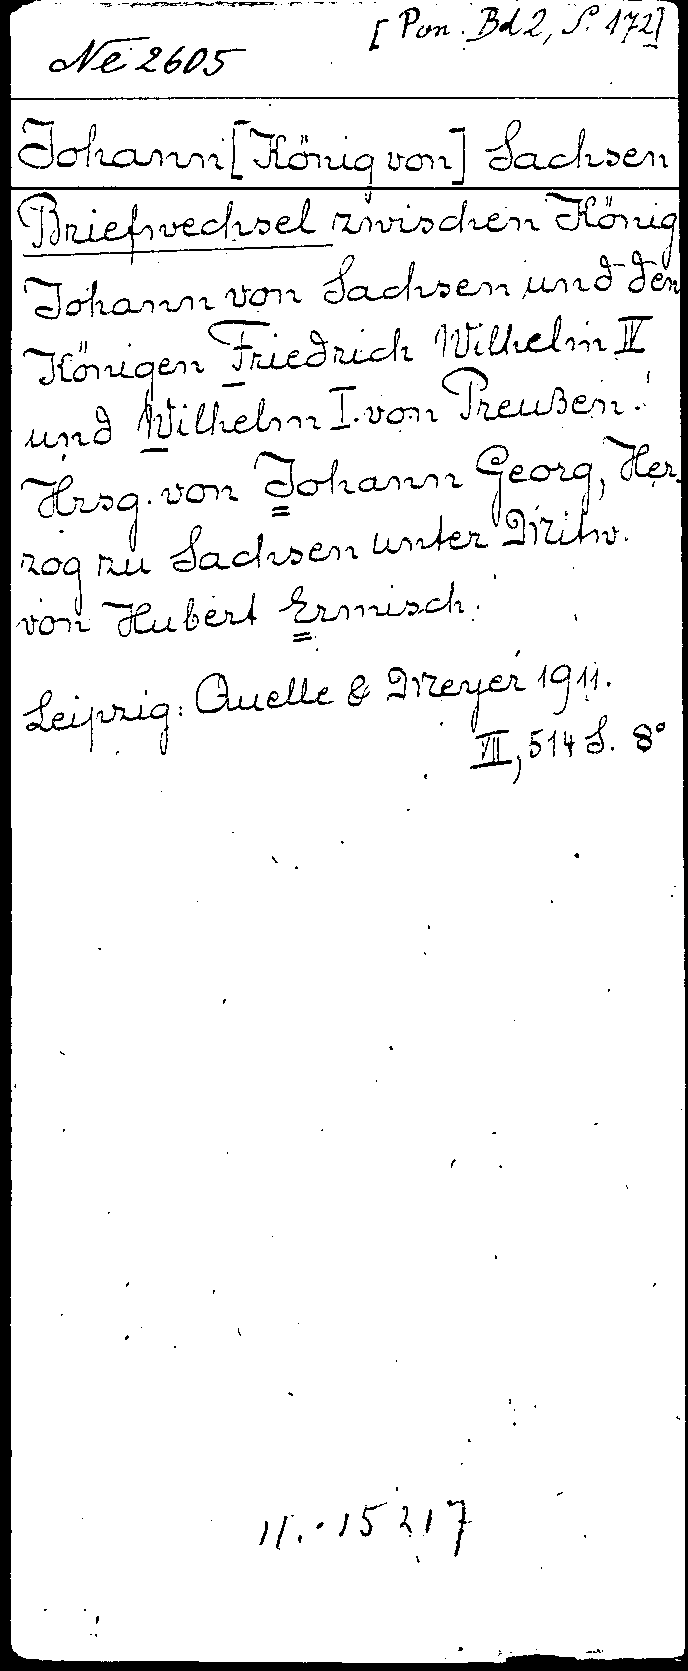 [Pon. Bd 2, S. 172]
Ne 2605
Johann [König von] Sachsen
Briefwechsel zwischen König
Johann von Sachsen und den
Königen Friedrich Wilhelm IV
und Wilhelm I. von Preußen.
Hrsg. von Johann Georg, Her-
zog zu Sachsen unter Mitw.
von Hubert Ermisch.
Leipzig: Quelle & Meyer 1911.
VII, 514 S. 8°
11.-15217